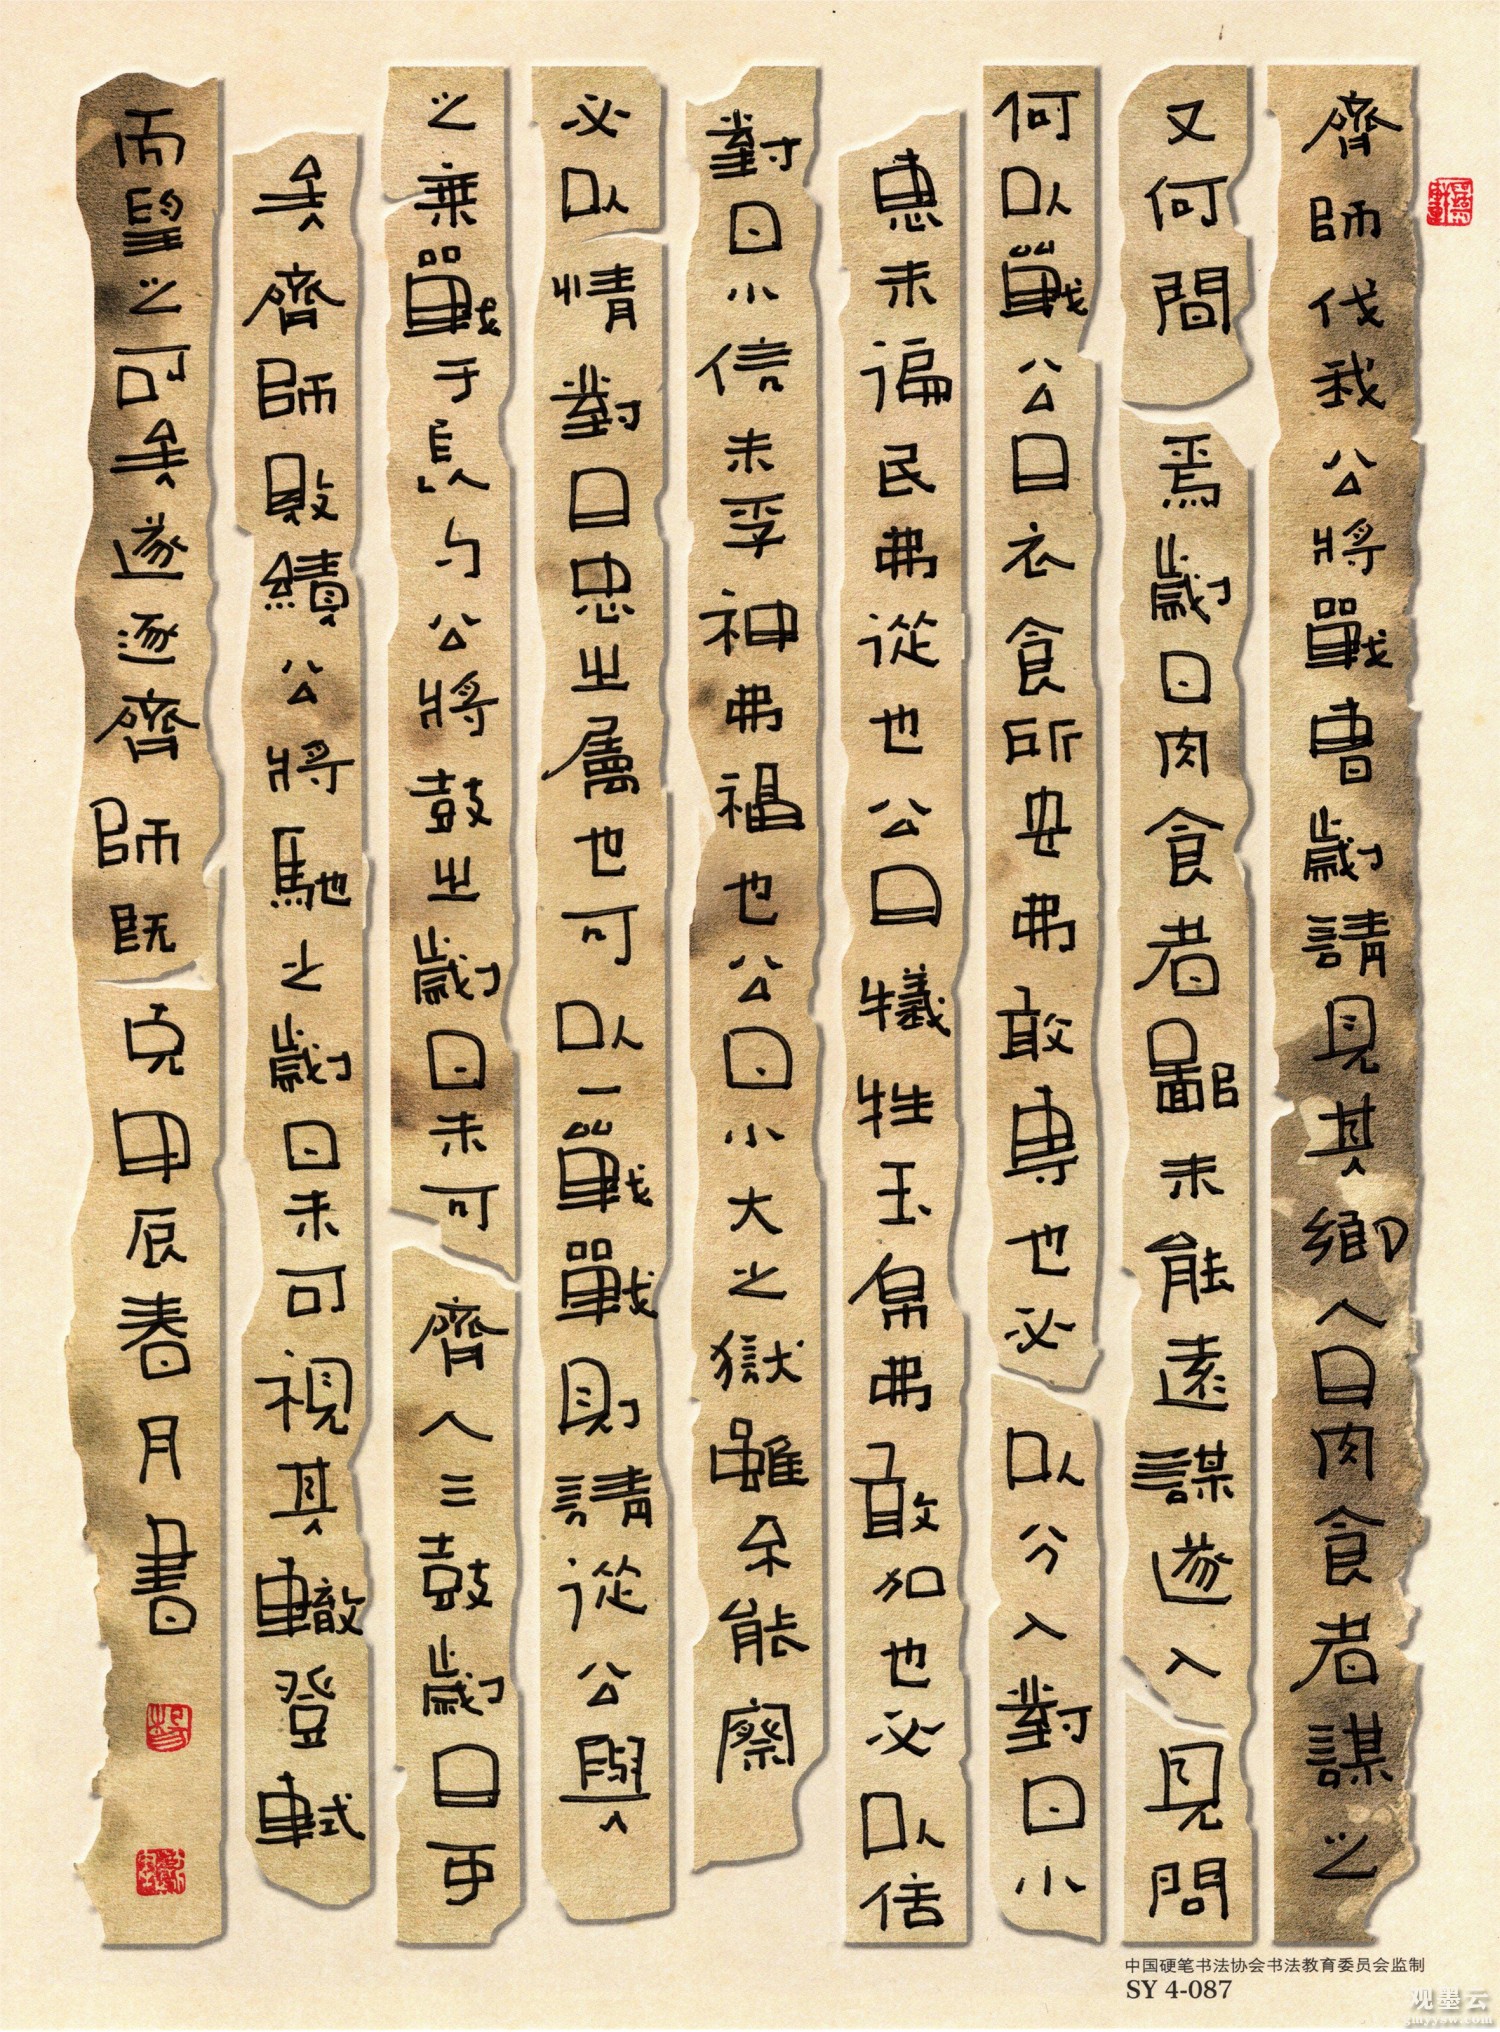 齊師伐我公將戰曹劌請見其鄉人曰肉食者謀之
又何間焉劌曰肉食者鄙未能遠謀遂入見問
何以戰公曰衣食所安弗敢專也必以分人對曰小
惠未徧民弗從也公曰犧牲玉帛弗敢加也必以信
對曰小信未孚神弗福也公曰小大之獄雖不能察
必以情對曰忠之屬也可以一戰戰則請從公與
之乘戰于長勺公將鼓之劌曰未可齊人三鼓劌曰可
矣齊師敗績公將馳之劌曰未可視其轍登軾
而望之可矣遂逐齊師既克甲辰春月書
中国硬笔书法协会书法教育委员会监制
SY 4-087
观墨云
gmyysw.com